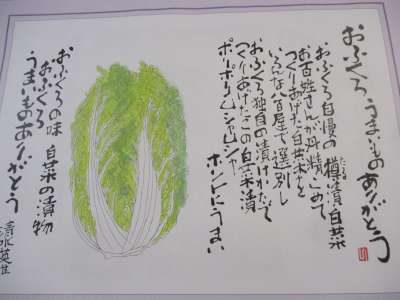 おふくろうまいものありがとう
おふくろ自慢の樽漬白菜
たる
お百姓さんが丹精こめて
つくりあげた白菜を
いろんな八百屋で選別し
おふくろ独自の漬けかたで
つくりあげたこの白菜漬
ポーポリムシャムシャ
ホントにうまい
おふくろの味 白菜の漬物
おふくろ
うまいものありがとう
清水英世